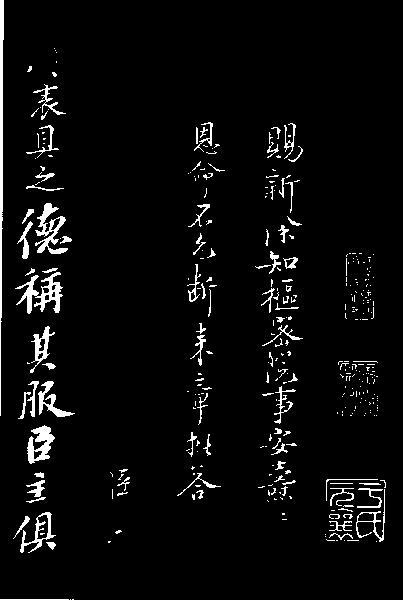 賜新除知樞密院事安燾
恩命不允斷來章批答
臣
表具之德稱其服臣主俱